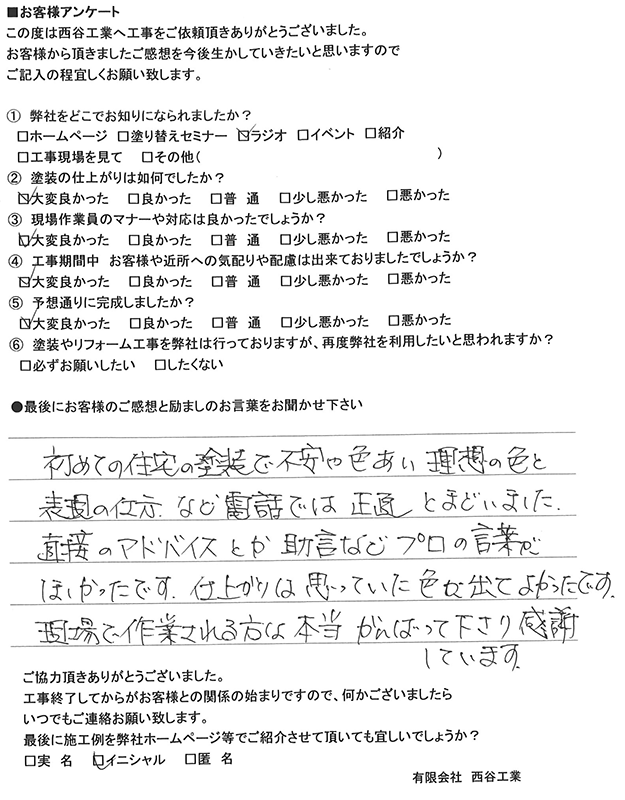 ■お客様アンケート
この度は西谷工業へ工事をご依頼頂きありがとうございました。
お客様から頂きましたご感想を今後生かしていきたいと思いますので
ご記入の程宜しくお願い致します。
① 弊社をどこでお知りになられましたか？
□ホームページ □塗り替えセミナー ☑ラジオ □イベント □紹介
□工事現場を見て □その他( )
② 塗装の仕上がりは如何でしたか？
☑大変良かった □良かった □普 通 □少し悪かった □悪かった
③ 現場作業員のマナーや対応は良かったでしょうか？
☑大変良かった □良かった □普 通 □少し悪かった □悪かった
④ 工事期間中 お客様や近所への気配りや配慮は出来ておりましたでしょうか？
☑大変良かった □良かった □普 通 □少し悪かった □悪かった
⑤ 予想通りに完成しましたか？
☑大変良かった □良かった □普 通 □少し悪かった □悪かった
⑥ 塗装やリフォーム工事を弊社は行っておりますが、再度弊社を利用したいと思われますか？
□必ずお願いしたい □したくない
●最後にお客様のご感想と励ましのお言葉をお聞かせ下さい
初めての住宅の塗装で不安や色あい 理想の色と
表現の仕方.など電話では 正直 とまどいました.
直接のアドバイスとか 助言など プロの言葉が
ほしかったです. 仕上がりは思っていた色が出てよかったです.
現場で作業される方は 本当 がんばって下さり感謝
しています.
ご協力頂きありがとうございました。
工事終了してからがお客様との関係の始まりですので、何かございましたら
いつでもご連絡お願い致します。
最後に施工例を弊社ホームページ等でご紹介させて頂いても宜しいでしょうか？
□実 名 ☑イニシャル □匿 名
有限会社 西谷工業